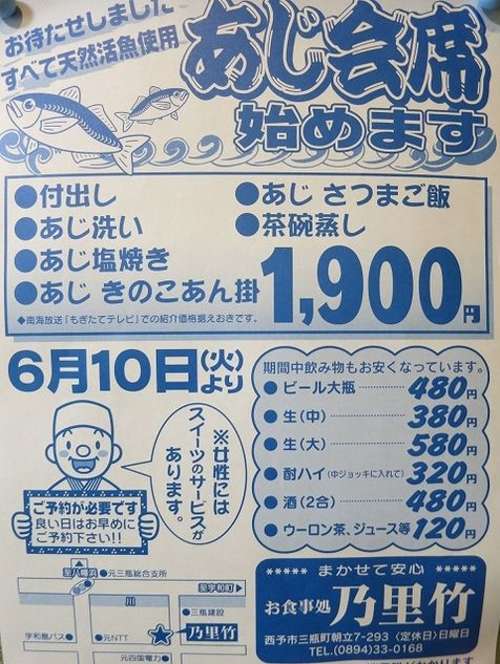 お待たせしました
すべて天然活魚使用
あじ会席
始めます
●付出し
●あじ洗い
●あじ塩焼き
●あじ きのこあん掛
●あじ さつまご飯
●茶碗蒸し
1,900円
◆南海放送「もぎたてテレビ」での紹介価格据えおきです。
6月10日(火)より
※女性には
スイーツのサービスが
あります。
ご予約が必要です
良い日はお早めに
ご予約下さい!!
期間中飲み物もお安くなっています。
●ビール大瓶 480円
●生(中) 380円
●生(大) 580円
●酎ハイ(中ジョッキに入れて) 320円
●酒(2合) 480円
●ウーロン茶、ジュース等 120円
至八幡浜
●元三瓶総合支所
至宇和町
川
●三瓶建設
乃里竹
宇和島バス●
●元NTT
元四国電力●
***** まかせて安心 *****
お食事処 乃里竹
西予市三瓶町朝立7-293 (定休日)日曜日
TEL.(0894)33-0168